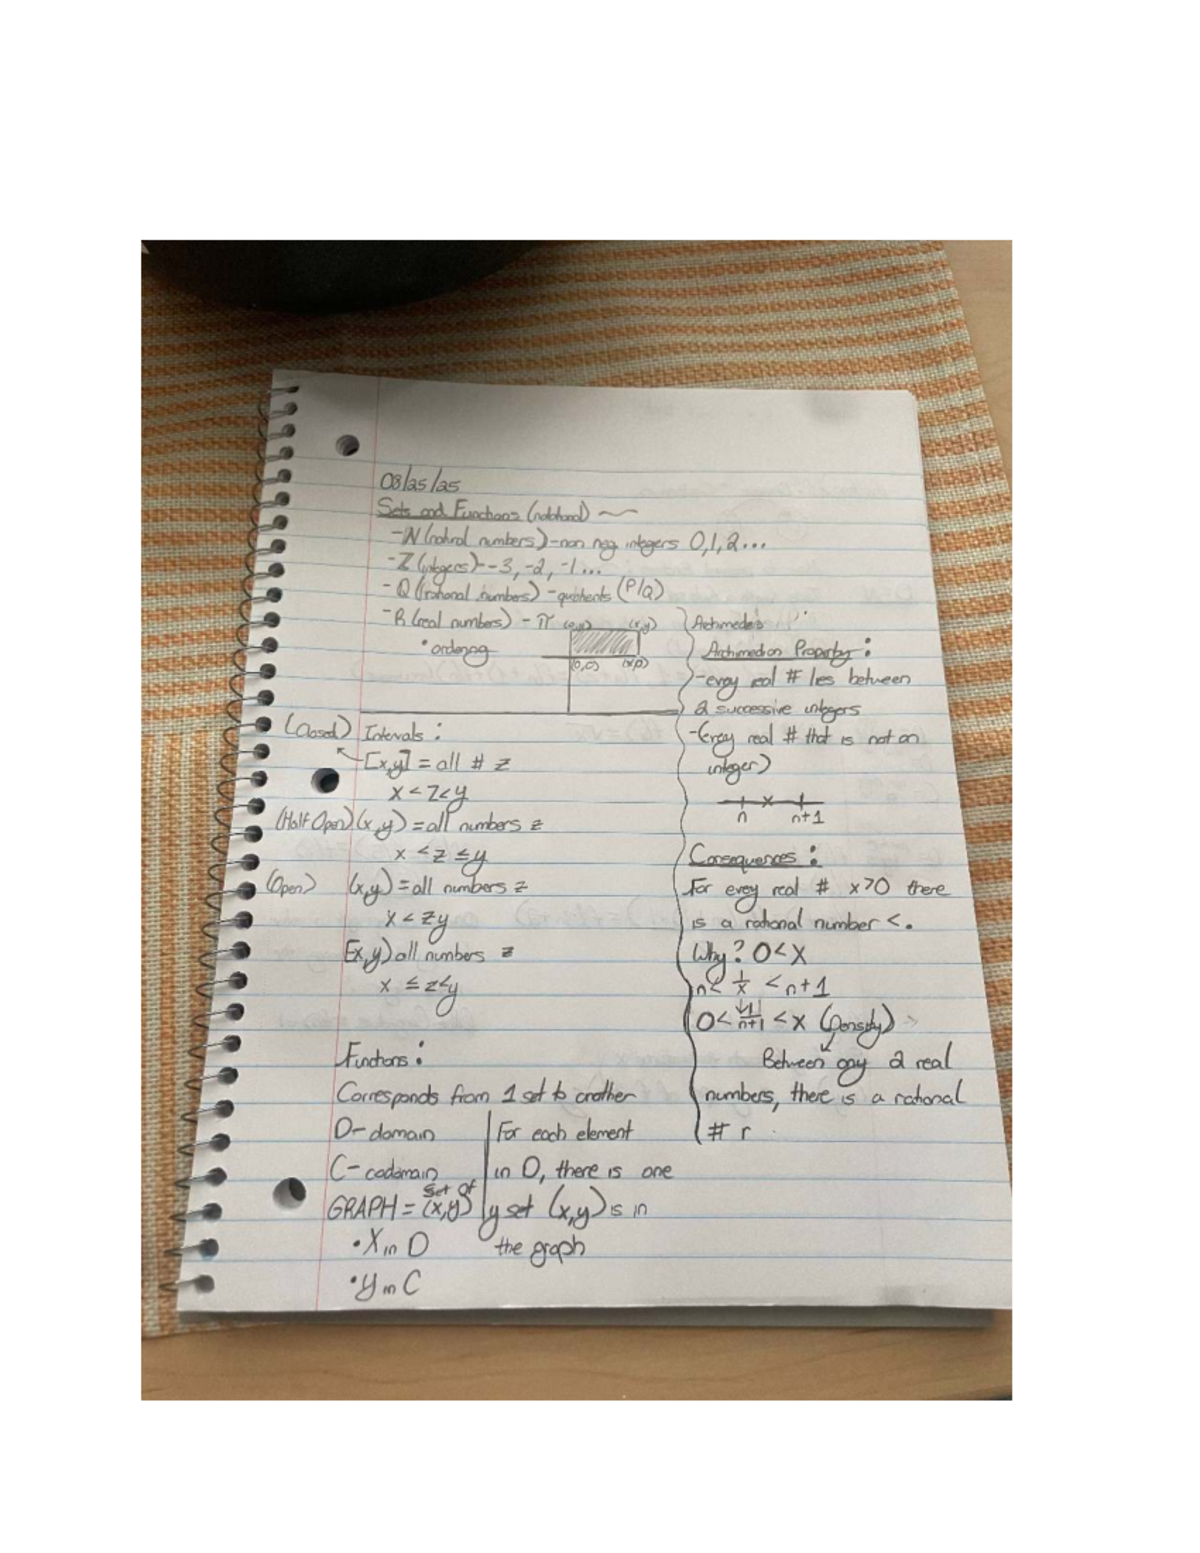 08/25/25
Sets and Functions (notational)
-N (natural numbers) - non neg integers 0,1,2...
-Z (integers) - -3, -2, -1...
-Q (rational numbers) - quotients (P/Q)
-R (real numbers) - π
• ordering
(0,y) (x,y)
(0,0) (x,0)
(Closed) Intervals:
[x,y] = all # z
x < z < y
(Half Open) (x,y) = all numbers z
x < z ≤ y
(Open) (x,y) = all numbers z
x < zy
[x,y) all numbers z
x ≤ z < y
Functions:
Corresponds from 1 set to another
D- domain
C- codomain
set of
GRAPH = (x,y)
• X in D
• y in C
For each element
in D, there is one
y set (x,y) is in
the graph
Archimedes
Archimedean Property:
-every real # lies between
2 successive integers
-(every real # that is not an
integer)
n x n+1
Consequences:
For every real # x>0 there
is a rational number <.
Why? 0<X
n < 1/x < n+1
0 < 1/n+1 < x (Density)
Between any 2 real
numbers, there is a rational
# r